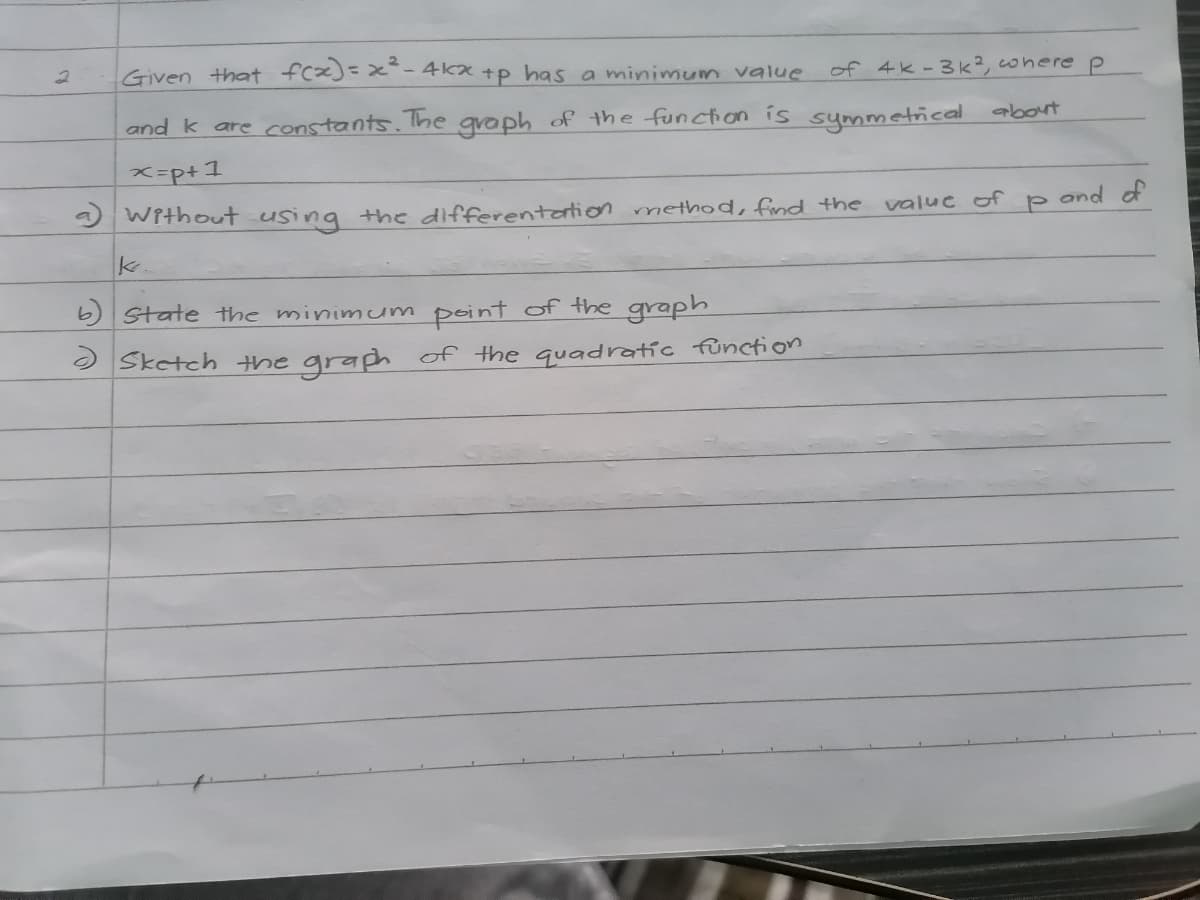 2 Given that f(x) = x² - 4kx + p has a minimum value of 4k - 3k², where p
and k are constants. The graph of the function is symmetrical about
x = p + 1
a) Without using the differentation method, find the value of p and of
k.
b) State the minimum point of the graph
c) Sketch the graph of the quadratic function